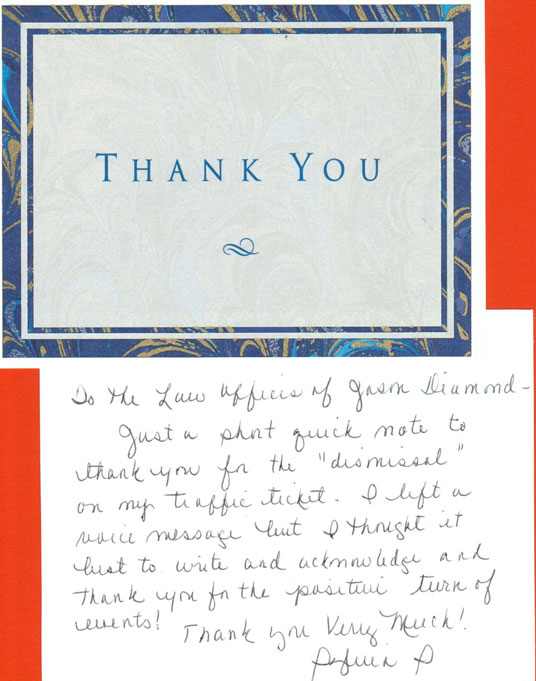 THANK YOU
To the Law Offices of Jason Diamond -
Just a short quick note to
thank you for the "dismissal"
on my traffic ticket. I left a
voice message but I thought it
best to write and acknowledge and
thank you for the positive turn of
events!
Thank you Very Much!